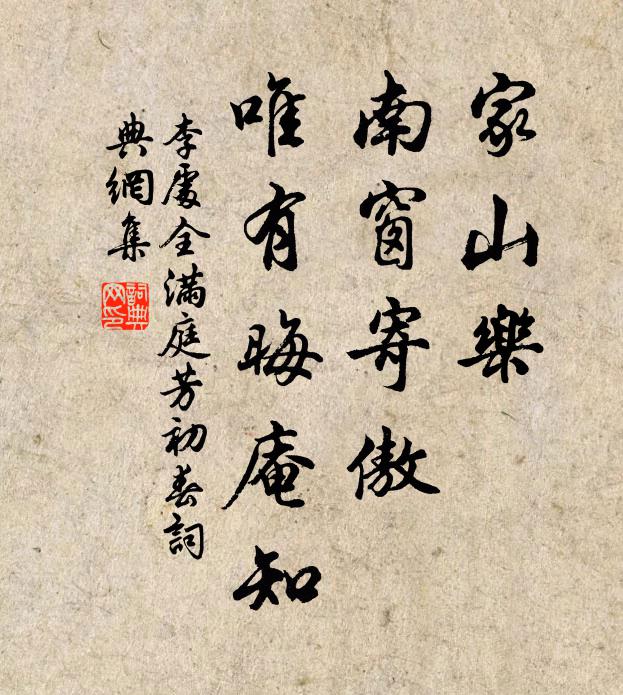 家山樂
南窗寄傲
唯有晦庵知
李處全滿庭芳初春詞
典網集
詞典網印